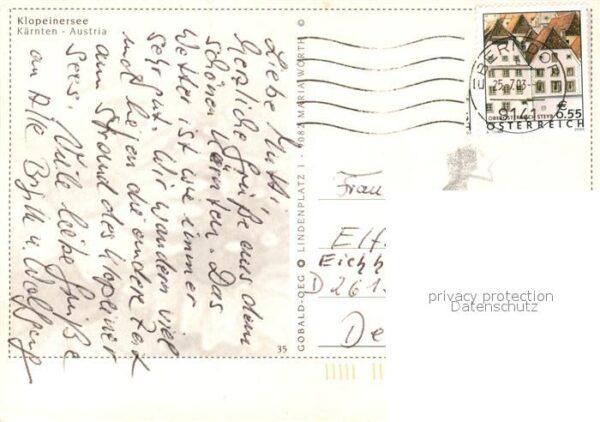 Klopeinersee
Kärnten - Austria
Liebe Mutti,
herzliche Grüße aus dem
schönen Kärnten. Das
Wetter ist wie immer
sehr gut. Wir wandern viel
und die andere Zeit
am Strand des Klopeiner
Sees. Viele liebe Grüße
an Alle u. Wolfgang
35
GOBALD-OEG LINDENPLATZ 1 - 9082 MARIA WÖRTH
25.7.03
9141
€ 0.55
ÖSTERREICH
Frau
Elf
Eichh
D 261
De
privacy protection
Datenschutz